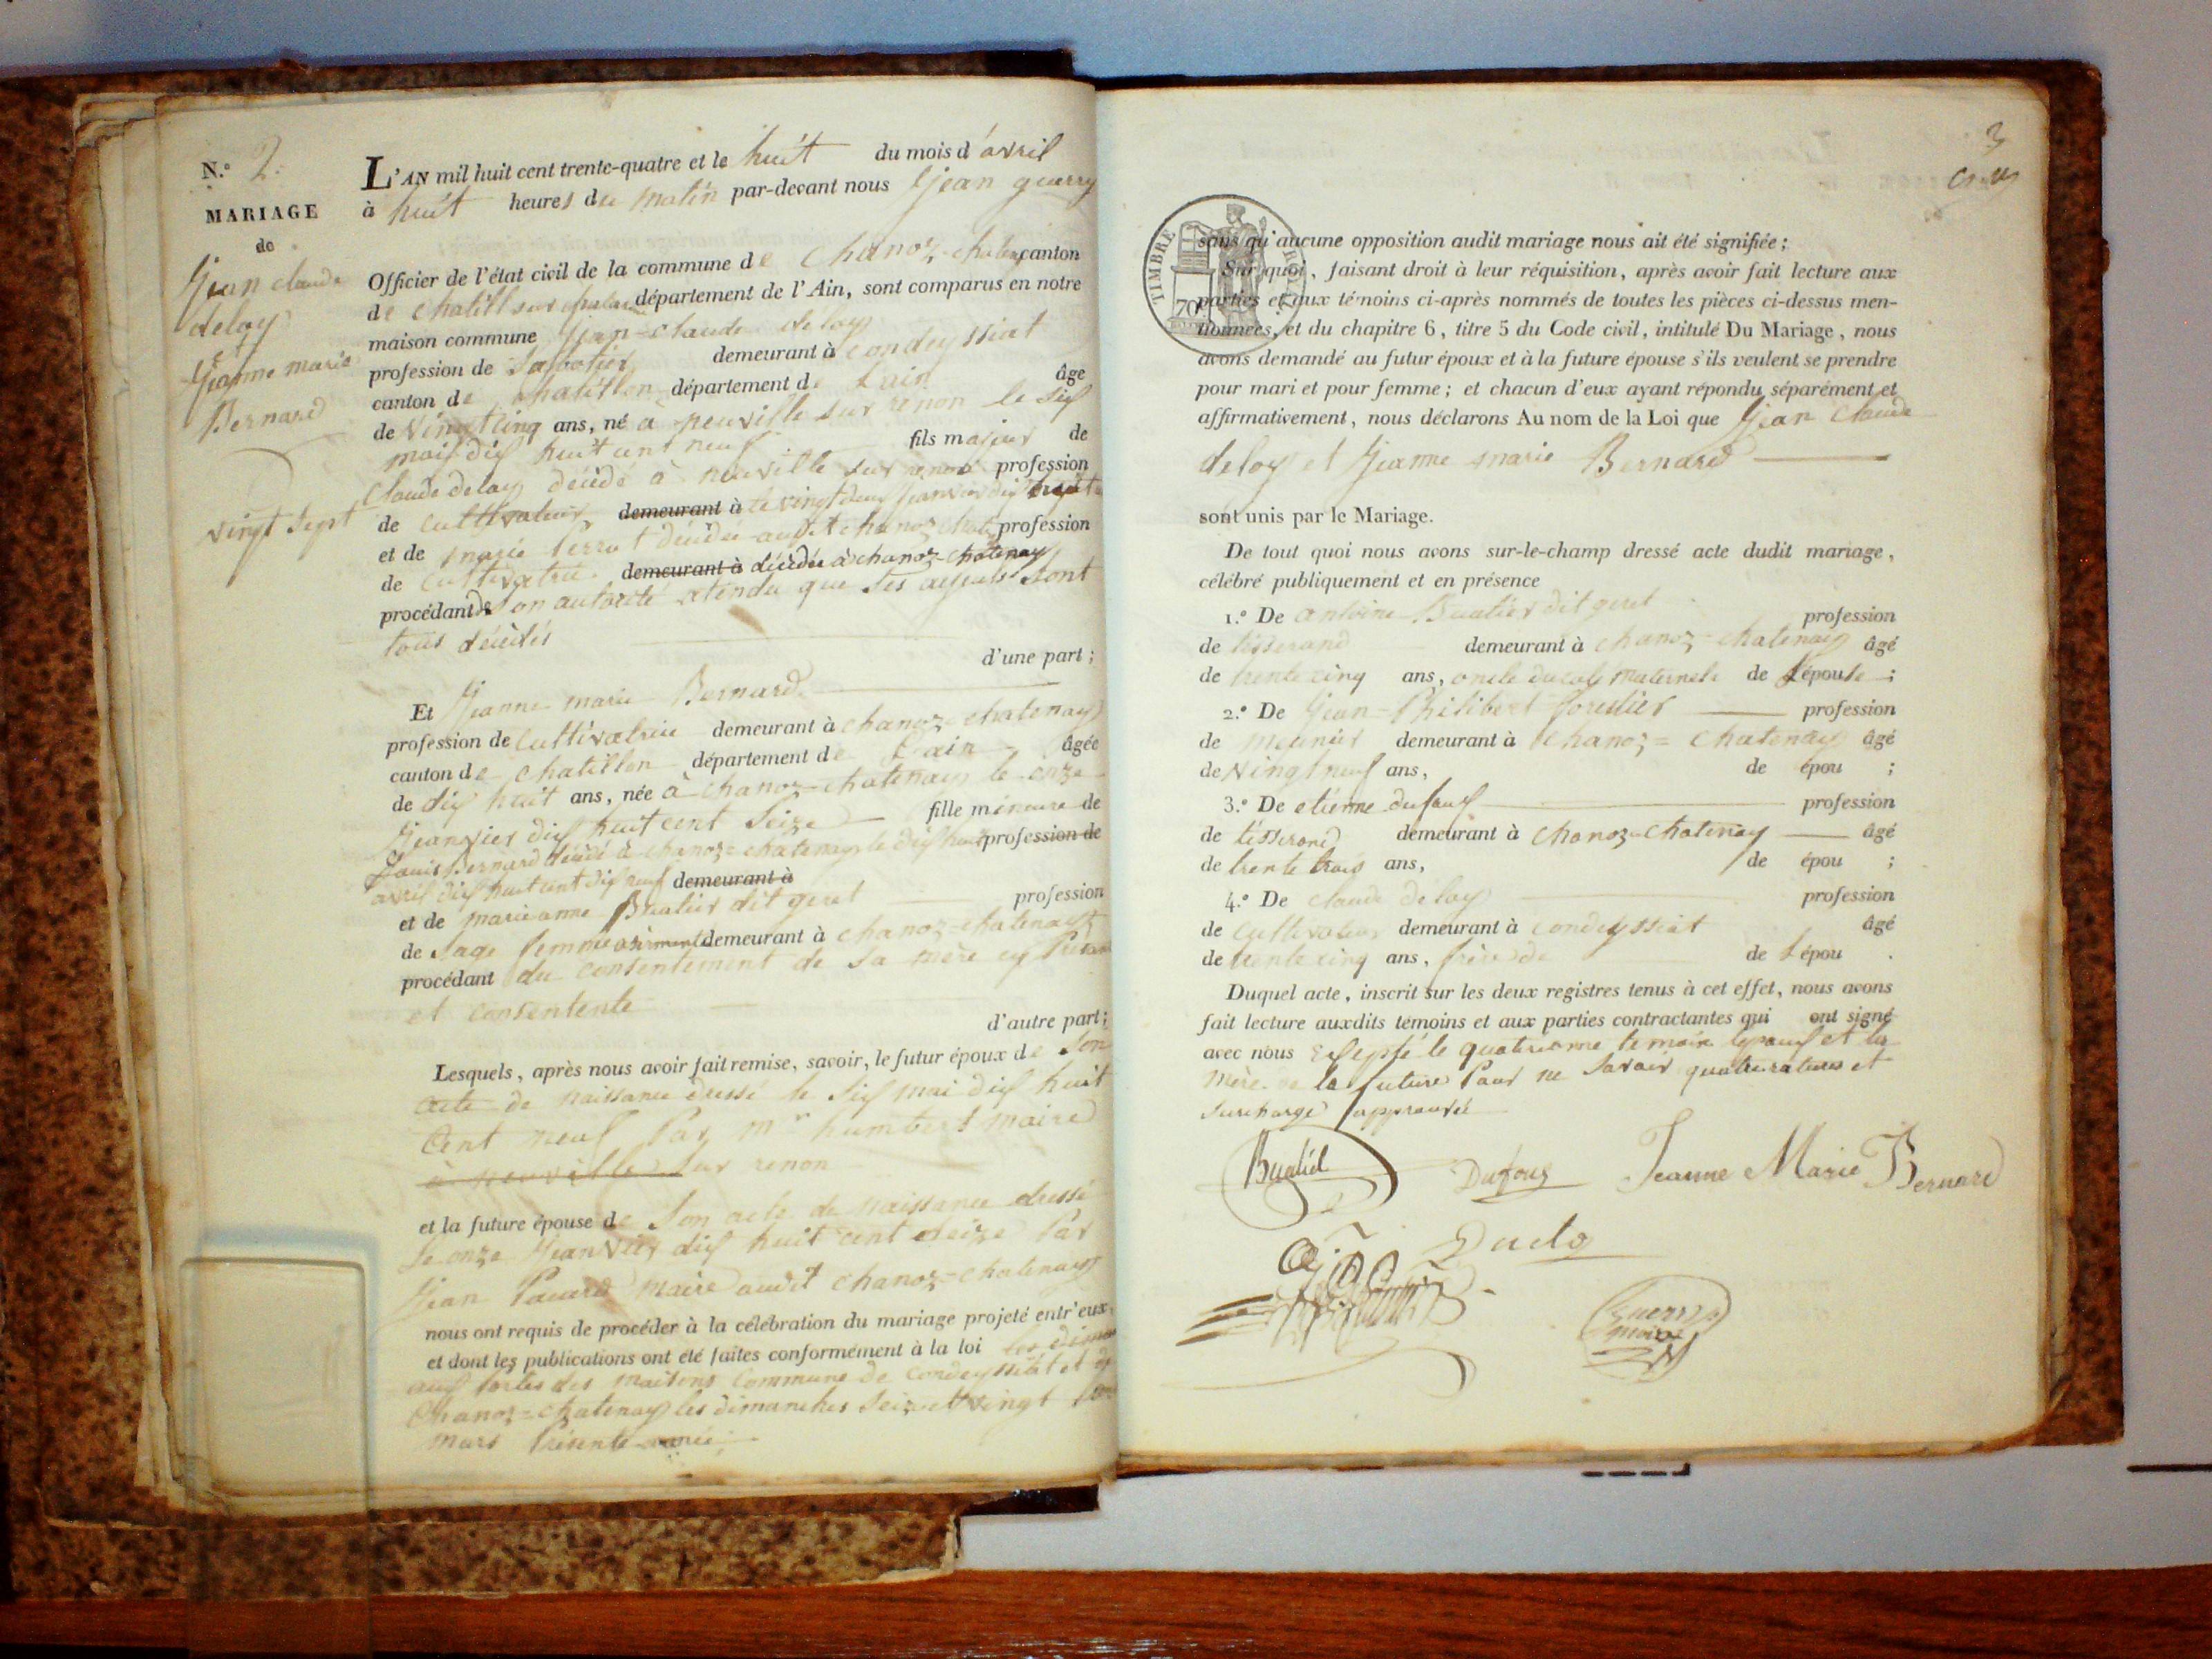 N.° 2.
MARIAGE
de
Jean claude
deloy
Jeanne marie
Bernard
vingt sept
L'AN mil huit cent trente-quatre et le huit du mois d'avril
à huit heures du matin par-devant nous Jean guerry
Officier de l'état civil de la commune de chanoz-chaten canton
de chatill sur chalar département de l'Ain, sont comparus en notre
maison commune Jean-claude deloy
profession de Sabotier demeurant à condeyssiat
canton de chatillon département de Lain âge
de vingt cinq ans, né à neuville sur renon le six
mai dix huit cent neuf fils majeur de
claude deloy décédé à neuville sur renon profession
de cultivateur demeurant à le vingt deux Janvier dix huit
et de marie Perrat décédée audit chanoz chate profession
de cultivatrice demeurant à décédée à chanoz-chatenay
procédant de Son autorité atendu que Ses ayeuls Sont
tous décédés
d'une part ;
Et Jeanne marie Bernard
profession de cultivatrice demeurant à chanoz chatenay
canton de chatillon département de Lain âgée
de dix huit ans, née à chanoz-chatenay le onze
Jeanvier dix huit cent Seize fille mineure de
Louis Bernard décédé à chanoz=chatenay le dix huit profession de
avril dix huit cent dix neuf demeurant à
et de marieanne Buatier dit geret profession
de Sage femme demeurant à chanoz=chatenay
procédant du consentement de Sa mère ey Présante
et consentente
d'autre part ;
Lesquels, après nous avoir fait remise, savoir, le futur époux de Son
acte de naissance dressé le Six mai dix huit
Cent neuf Par mr humbert maire
à neuville Sur renon
et la future épouse de Son acte de naissance dressé
le onze Jeanvier dix huit cent Seize Par
Jean maire audit chanoz=chatenay
nous ont requis de procéder à la célébration du mariage projeté entr'eux,
et dont les publications ont été faites conformément à la loi
aux Portes des maisons commune de condeyssiat et de
Chanoz=chatenay les dimanches Seize et vingt
mars Présente année
3
TIMBRE ROYAL
70
sans qu'aucune opposition audit mariage nous ait été signifiée ;
Sur quoi, faisant droit à leur réquisition, après avoir fait lecture aux
parties et aux témoins ci-après nommés de toutes les pièces ci-dessus men-
tionnées, et du chapitre 6, titre 5 du Code civil, intitulé Du Mariage, nous
avons demandé au futur époux et à la future épouse s'ils veulent se prendre
pour mari et pour femme ; et chacun d'eux ayant répondu séparément et
affirmativement, nous déclarons Au nom de la Loi que Jean Claude
deloy et Jeanne marie Bernard
sont unis par le Mariage.
De tout quoi nous avons sur-le-champ dressé acte dudit mariage,
célébré publiquement et en présence
1.° De antoine Buatier dit geret profession
de tisserand demeurant à chanoz=chatenay âgé
de trente cinq ans, oncle du coté maternele de Lépouse ;
2.° De Jean-Philibert forestier profession
de meunier demeurant à chanoz=chatenay âgé
de vingt neuf ans, de épou ;
3.° De etienne dufour profession
de tisserand demeurant à chanoz=chatenay âgé
de trente trois ans, de épou ;
4.° De claude deloy profession
de cultivateur demeurant à condeyssiat âgé
de trente cinq ans, frère de de Lépou .
Duquel acte, inscrit sur les deux registres tenus à cet effet, nous avons
fait lecture auxdits témoins et aux parties contractantes qui ont signé
avec nous exsepté le quatrieme temoin lepoux et la
mère de la future Pour ne Savoir quatre ratures et
Surcharge approuvée
Buatiel
Dufour
Jeanne Marie Bernard
Guerry
maire